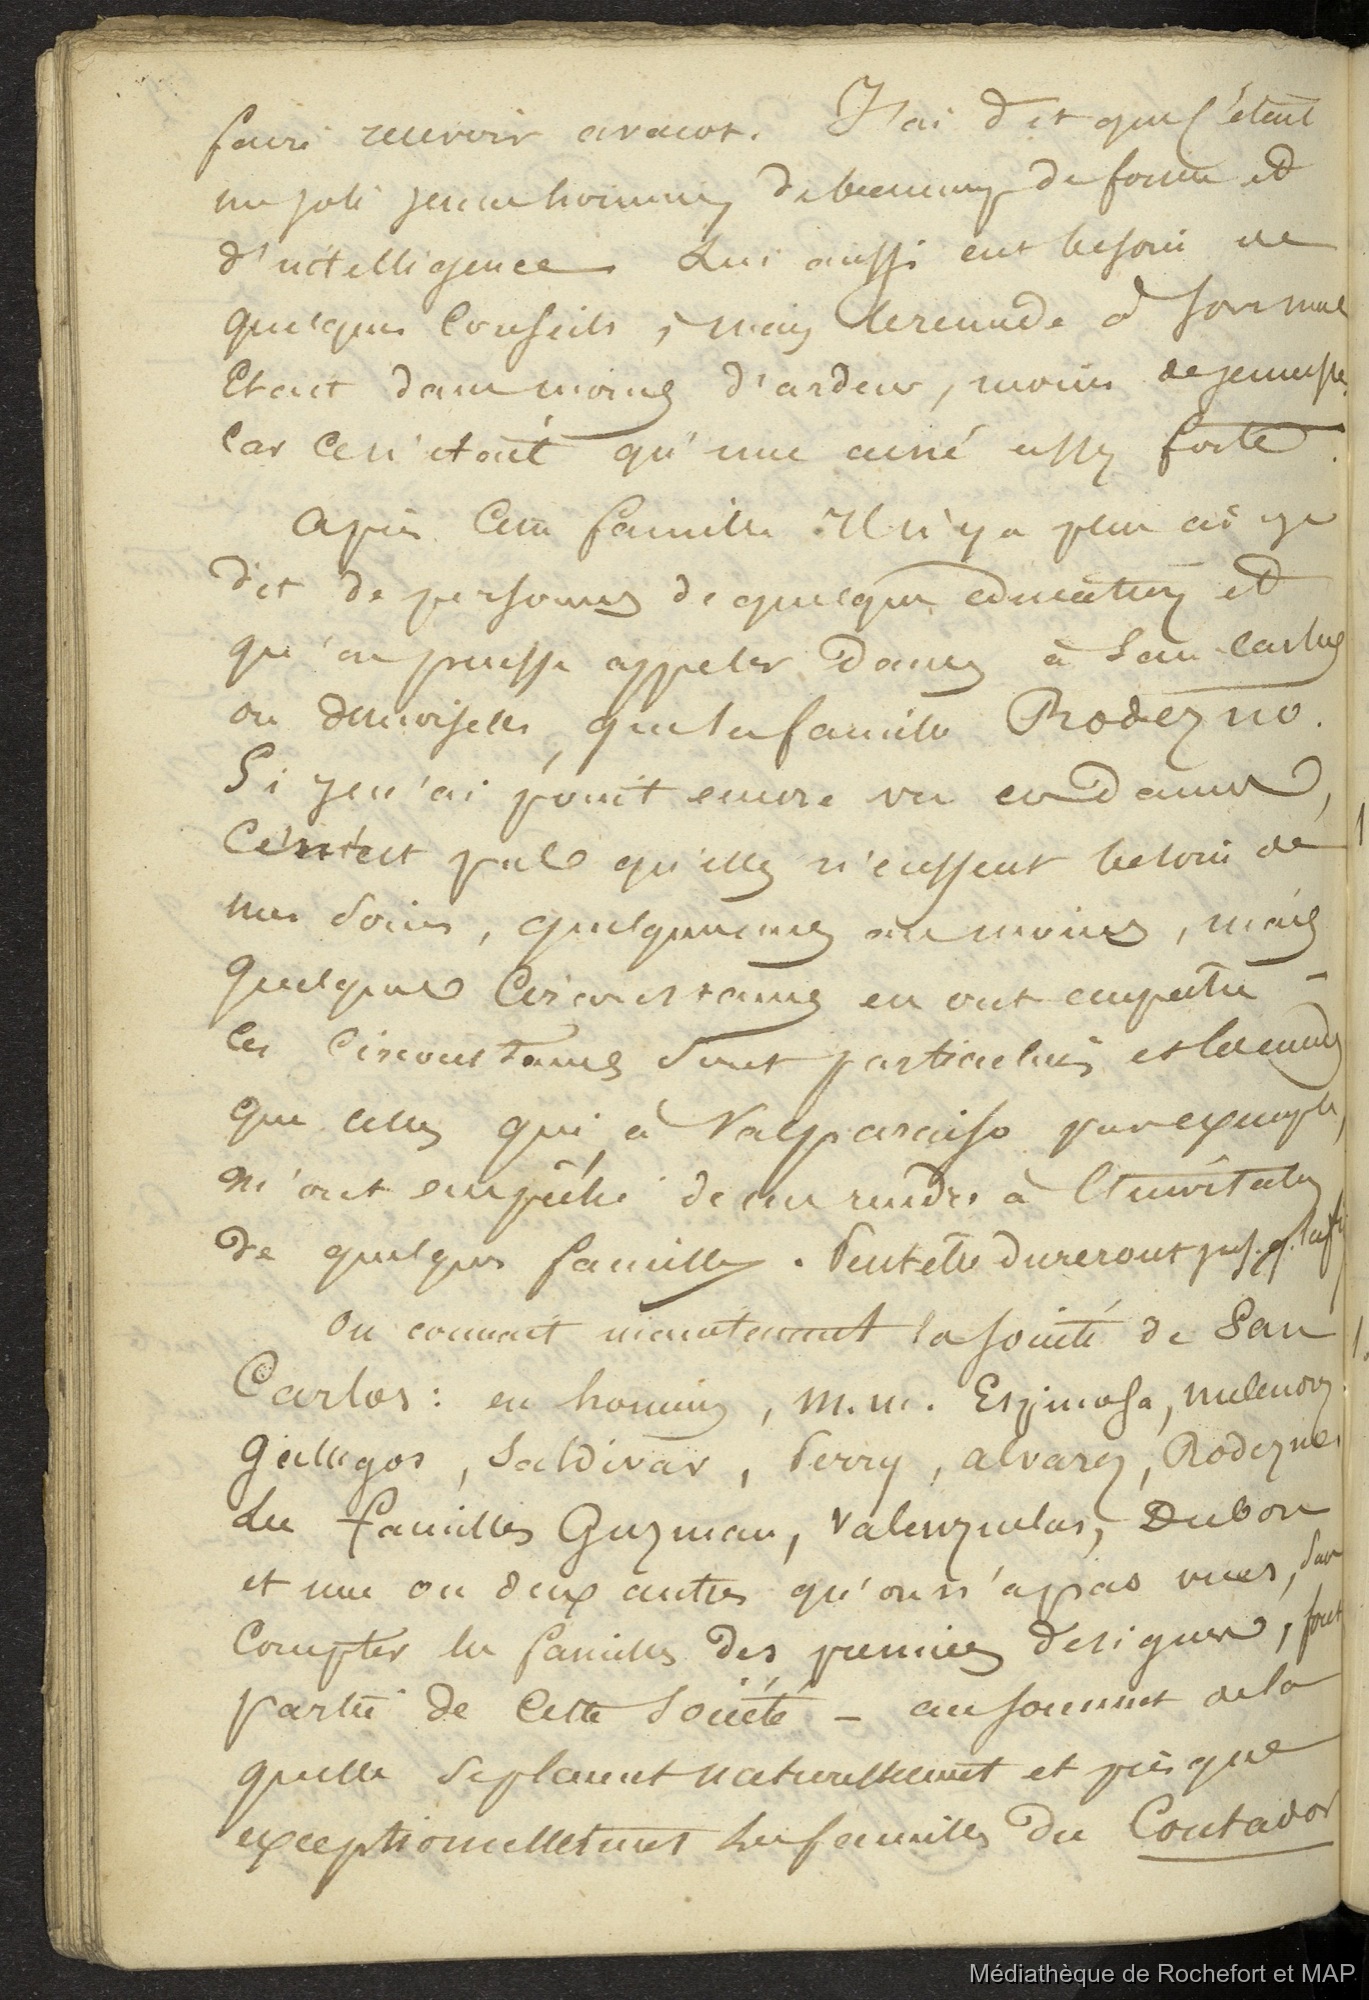 faire recevoir avocat. J'ai dit que c'était
un joli jeune homme, de beaucoup de forme et
d'intelligence. Lui aussi eut besoin de
quelques conseils, mais le remède à son mal
était dans moins d'ardeur, moins de jeunesse,
car ce n'était qu'une assez forte.
après cette famille il n'y a plus ai je
dit de personnes de quelque education et
qu'on puisse appeler Dames à San Carlos
ou demoiselles, que la famille Rodezno.
Si je n'ai point encore vu ces dames,
ce n'est pas qu'elles n'eussent besoin de
mes soins, quelqu'unes au moins, mais
quelques circonstances en ont empêché –
les circonstances sont particulières
que celles qui à Valparaiso par exemple,
m'ont empêché de me rendre à l'invitation
de quelques familles. Peutetre dureront
On connait maintenant la société de San
Carlos : en hommes, M.M. Espinosa,
Gallegos, Saldivar, Perry, alvarez, Rodezno.
Les familles Guzman, Valenzuelas, Dubon
et une ou deux autres qu'on n'a pas vues, sans
compter les familles des premiers designés, font
partie de cette Société – au sommet de la
quelle se placent naturellement et presque
exceptionnellement les familles du Contador
Médiathèque de Rochefort et MAP